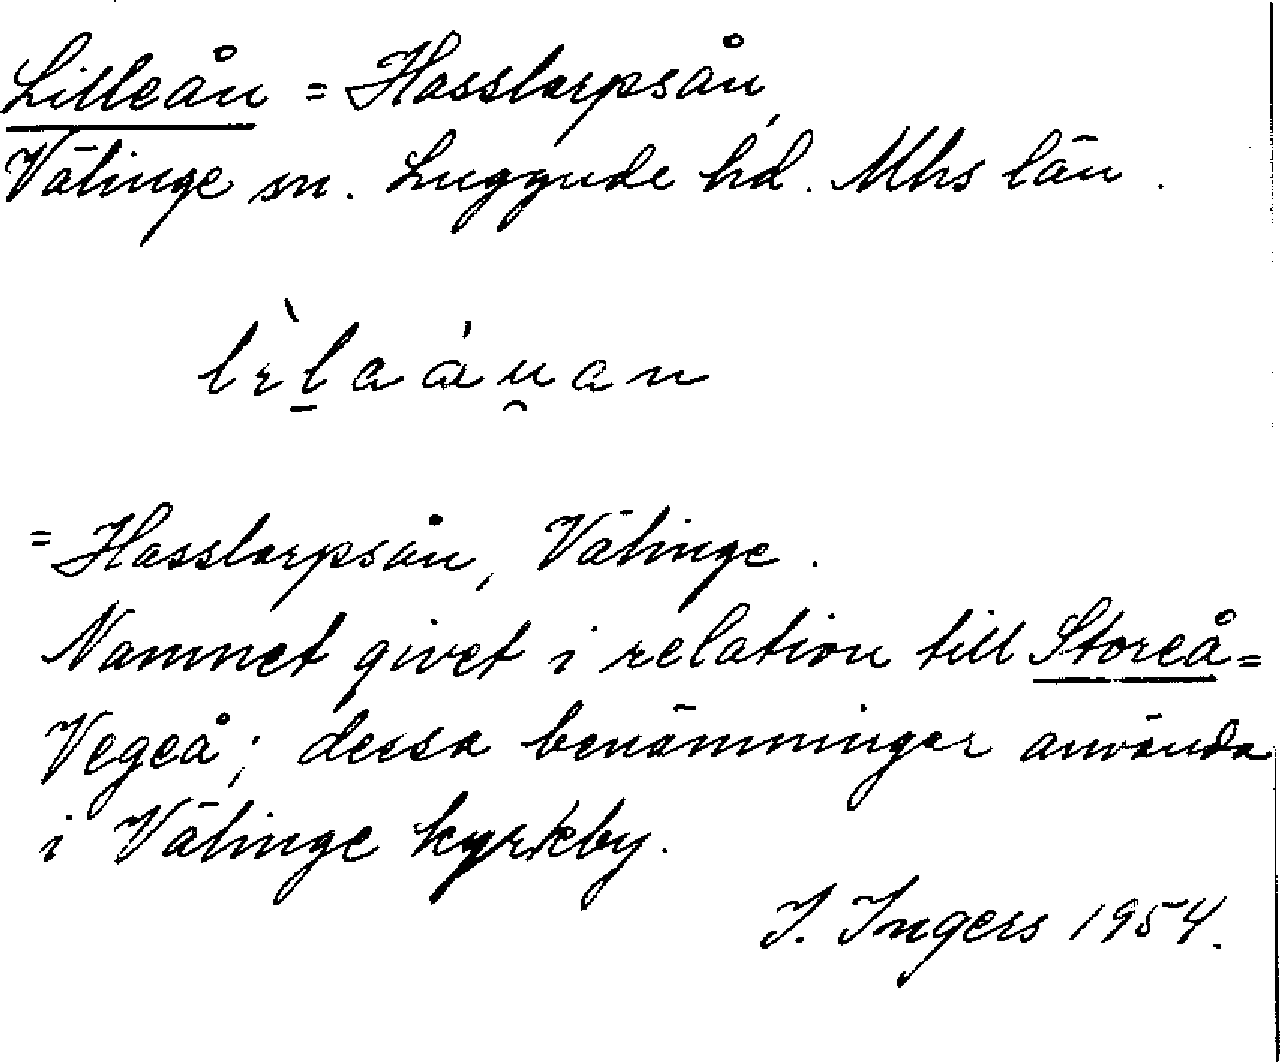 Lilleån = Hasslarpsån,
Välinge sn. Luggude hd. Mhs län.
= Hasslarpsån, Välinge.
Namnet givet i relation till Storeå =
Vegeå; dessa benämningar använda
i Välinge kyrkby.
I. Ingers 1954.